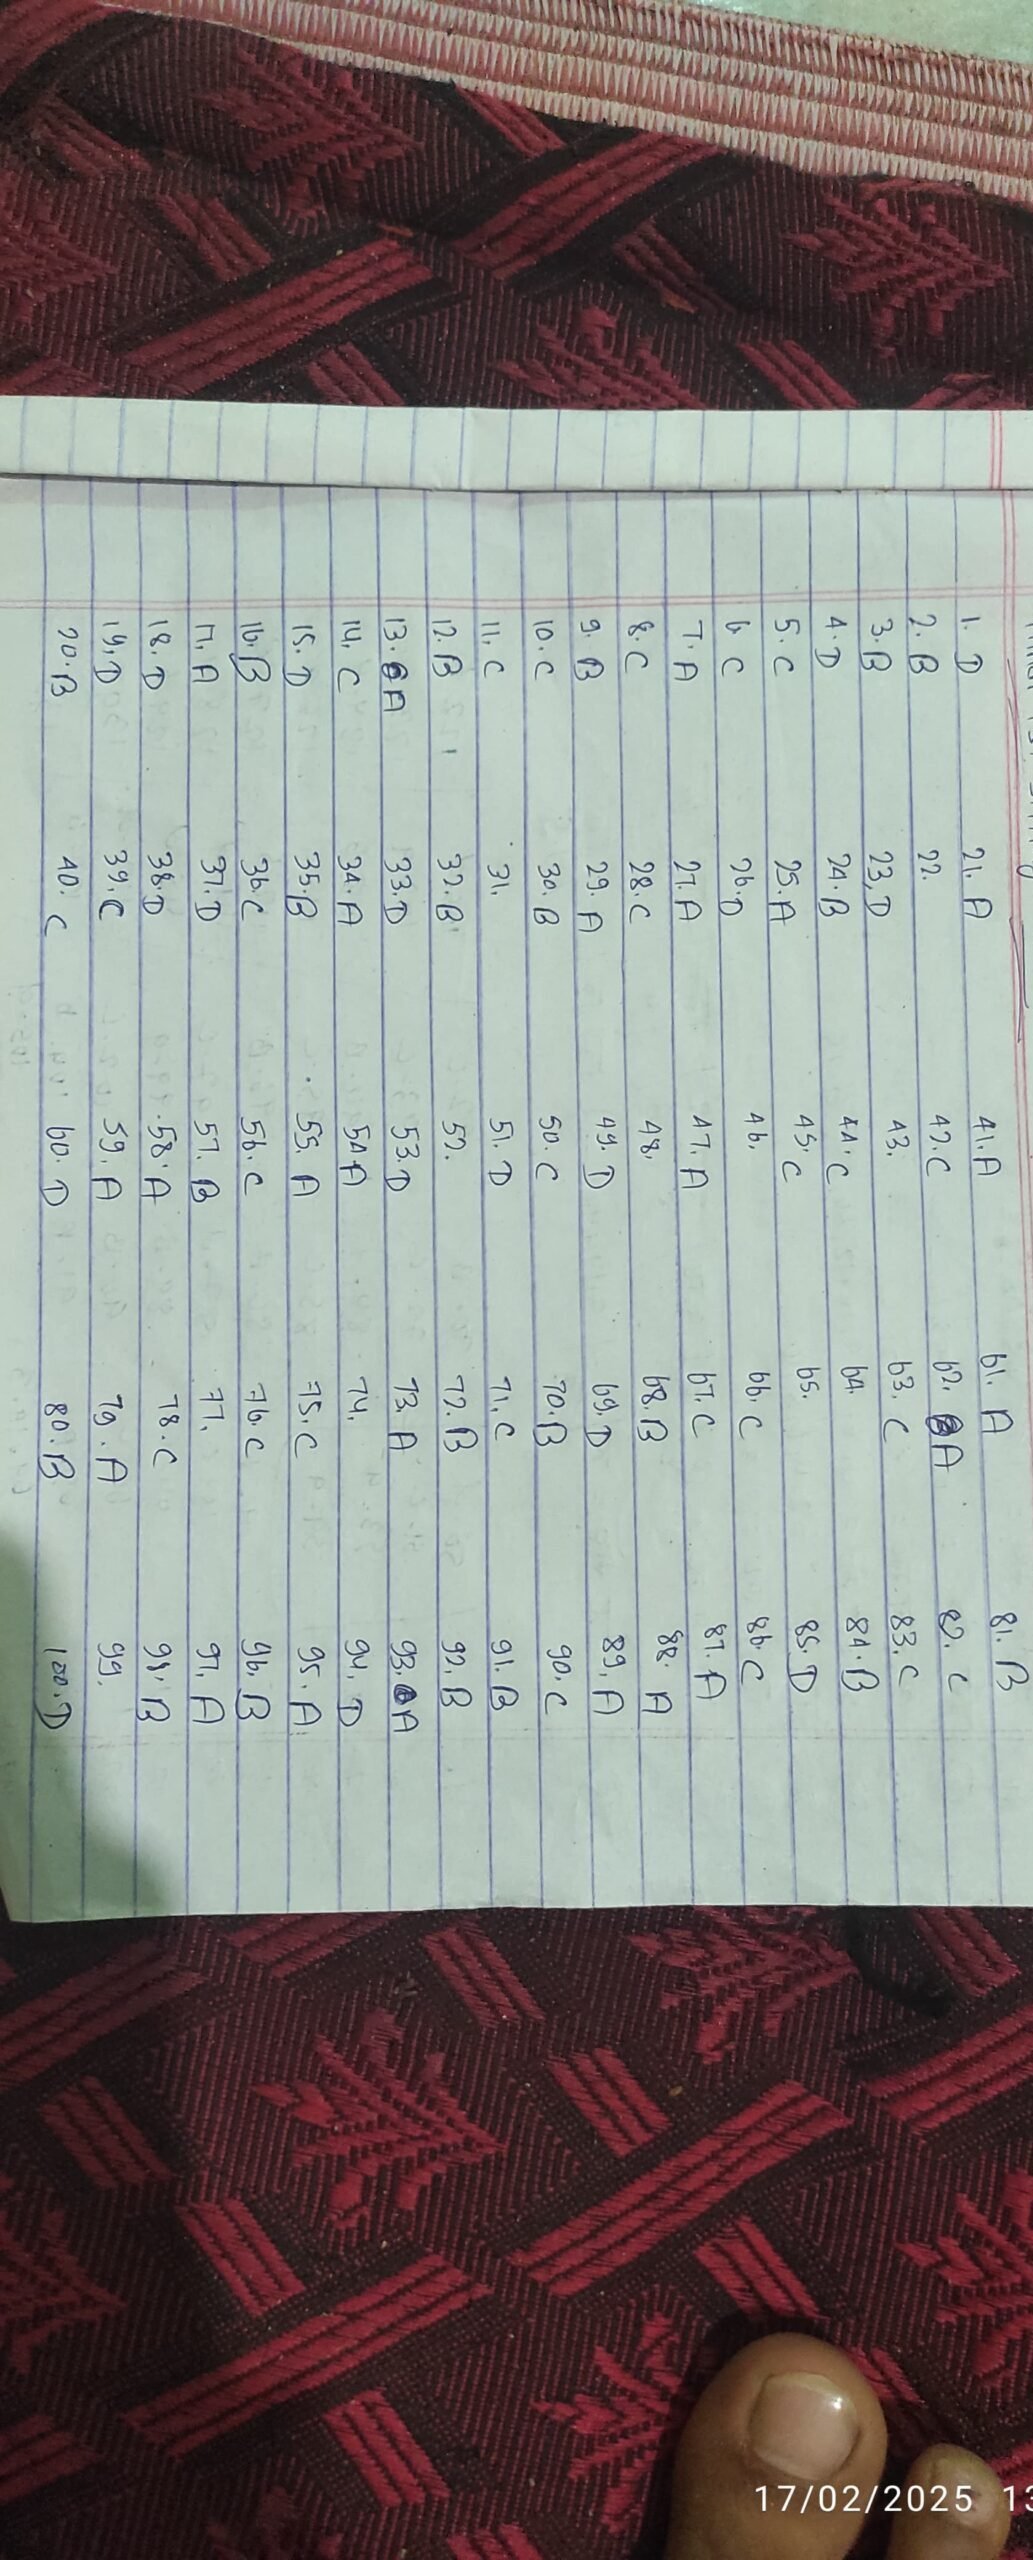 1. D 21. A 41. A 61. A 81. B
2. B 22. 42. C 62. A 82. C
3. B 23. D 43. 63. C 83. C
4. D 24. B 44. C 64. 84. B
5. C 25. A 45. C 65. 85. D
6. C 26. D 46. 66. C 86. C
7. A 27. A 47. A 67. C 87. A
8. C 28. C 48. 68. B 88. A
9. B 29. A 49. D 69. D 89. A
10. C 30. B 50. C 70. B 90. C
11. C 31. 51. D 71. C 91. B
12. B 32. B 52. 72. B 92. B
13. A 33. D 53. D 73. A 93. A
14. C 34. A 54 A 74. 94. D
15. D 35. B 55. A 75. C 95. A
16. B 36. C 56. C 76. C 96. B
17. A 37. D 57. B 77. 97. A
18. D 38. D 58. A 78. C 98. B
19. D 39. C 59. A 79. A 99.
20. B 40. C 60. D 80. B 100. D
17/02/2025 13